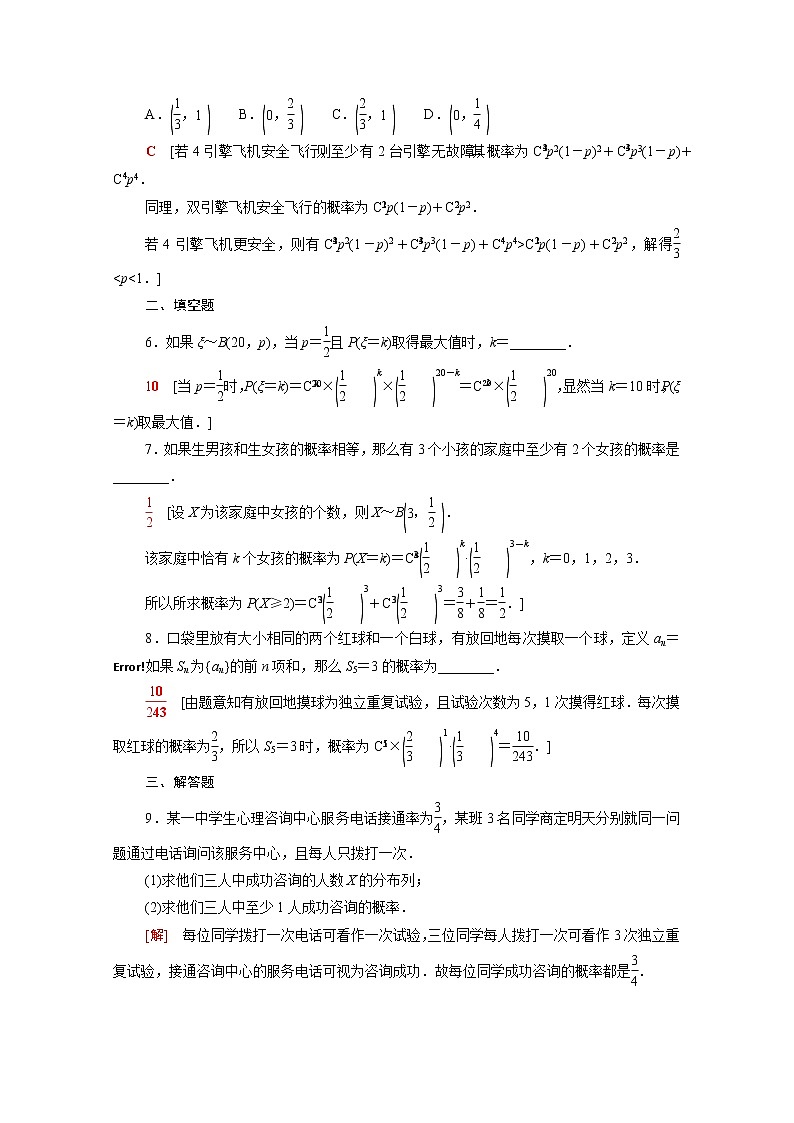 A.(1/3，1)　B.(0，2/3)　C.(2/3，1)　D.(0，1/4)
C　[若 4 引擎飞机安全飞行则至少有 2 台引擎无故障其概率为 Cp²(1－p)²＋Cp³(1－p)＋
Cp⁴.
同理，双引擎飞机安全飞行的概率为 Cp(1－p)＋Cp².
若 4 引擎飞机更安全，则有 Cp²(1－p)²＋Cp³(1－p)＋Cp⁴>Cp(1－p)＋Cp²，解得2/3
<p<1.]
二、填空题
6．如果 ξ～B(20，p)，当 p＝1/2且 P(ξ＝k)取得最大值时，k＝________.
10　[当 p＝1/2时,P(ξ＝k)＝C×(1/2)^k×(1/2)^(20－k)＝C×(1/2)^20,显然当 k＝10 时,P(ξ
＝k)取最大值．]
7．如果生男孩和生女孩的概率相等，那么有 3 个小孩的家庭中至少有 2 个女孩的概率是
________.
1/2　[设 X 为该家庭中女孩的个数，则 X～B(3，1/2).
该家庭中恰有 k 个女孩的概率为 P(X＝k)＝C(1/2)^k·(1/2)^(3－k)，k＝0，1，2，3.
所以所求概率为 P(X≥2)＝C(1/2)³＋C(1/2)³＝3/8＋1/8＝1/2.]
8．口袋里放有大小相同的两个红球和一个白球，有放回地每次摸取一个球，定义 aₙ＝
Error!如果 Sₙ为{aₙ}的前 n 项和，那么 S₅＝3 的概率为________.
10/243　[由题意知有放回地摸球为独立重复试验，且试验次数为 5，1 次摸得红球．每次摸
取红球的概率为2/3，所以 S₅＝3 时，概率为 C×(2/3)¹·(1/3)⁴＝10/243.]
三、解答题
9．某一中学生心理咨询中心服务电话接通率为3/4，某班 3 名同学商定明天分别就同一问
题通过电话询问该服务中心，且每人只拨打一次．
(1)求他们三人中成功咨询的人数 X 的分布列；
(2)求他们三人中至少 1 人成功咨询的概率．
[解]　每位同学拨打一次电话可看作一次试验,三位同学每人拨打一次可看作 3 次独立重
复试验，接通咨询中心的服务电话可视为咨询成功．故每位同学成功咨询的概率都是3/4.